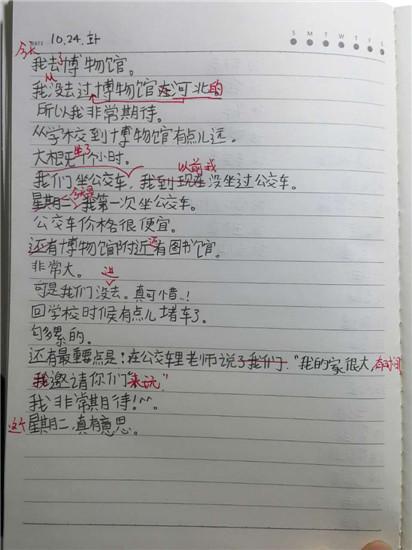 DATE 10.24.화
S M T W T F S
今天
我去了博物馆。
我没去过博物馆在河北的
所以我非常期待。
从学校到博物馆有点儿远。
大概坐了1个小时。
以前我
我们坐公交车，我到现在没坐过公交车。
星期二，今天是我第一次坐公交车。
公交车价格很便宜。
还有博物馆附近还有图书馆。
非常大。
进
可是我们没去。真可惜!
回学校时候有点儿堵车了。
够累的。
还有最重要点是：在公交车里老师说了我们："我的家很大，有时间
我邀请你们来玩"
我非常期待!^^.
这个星期二，真有意思。